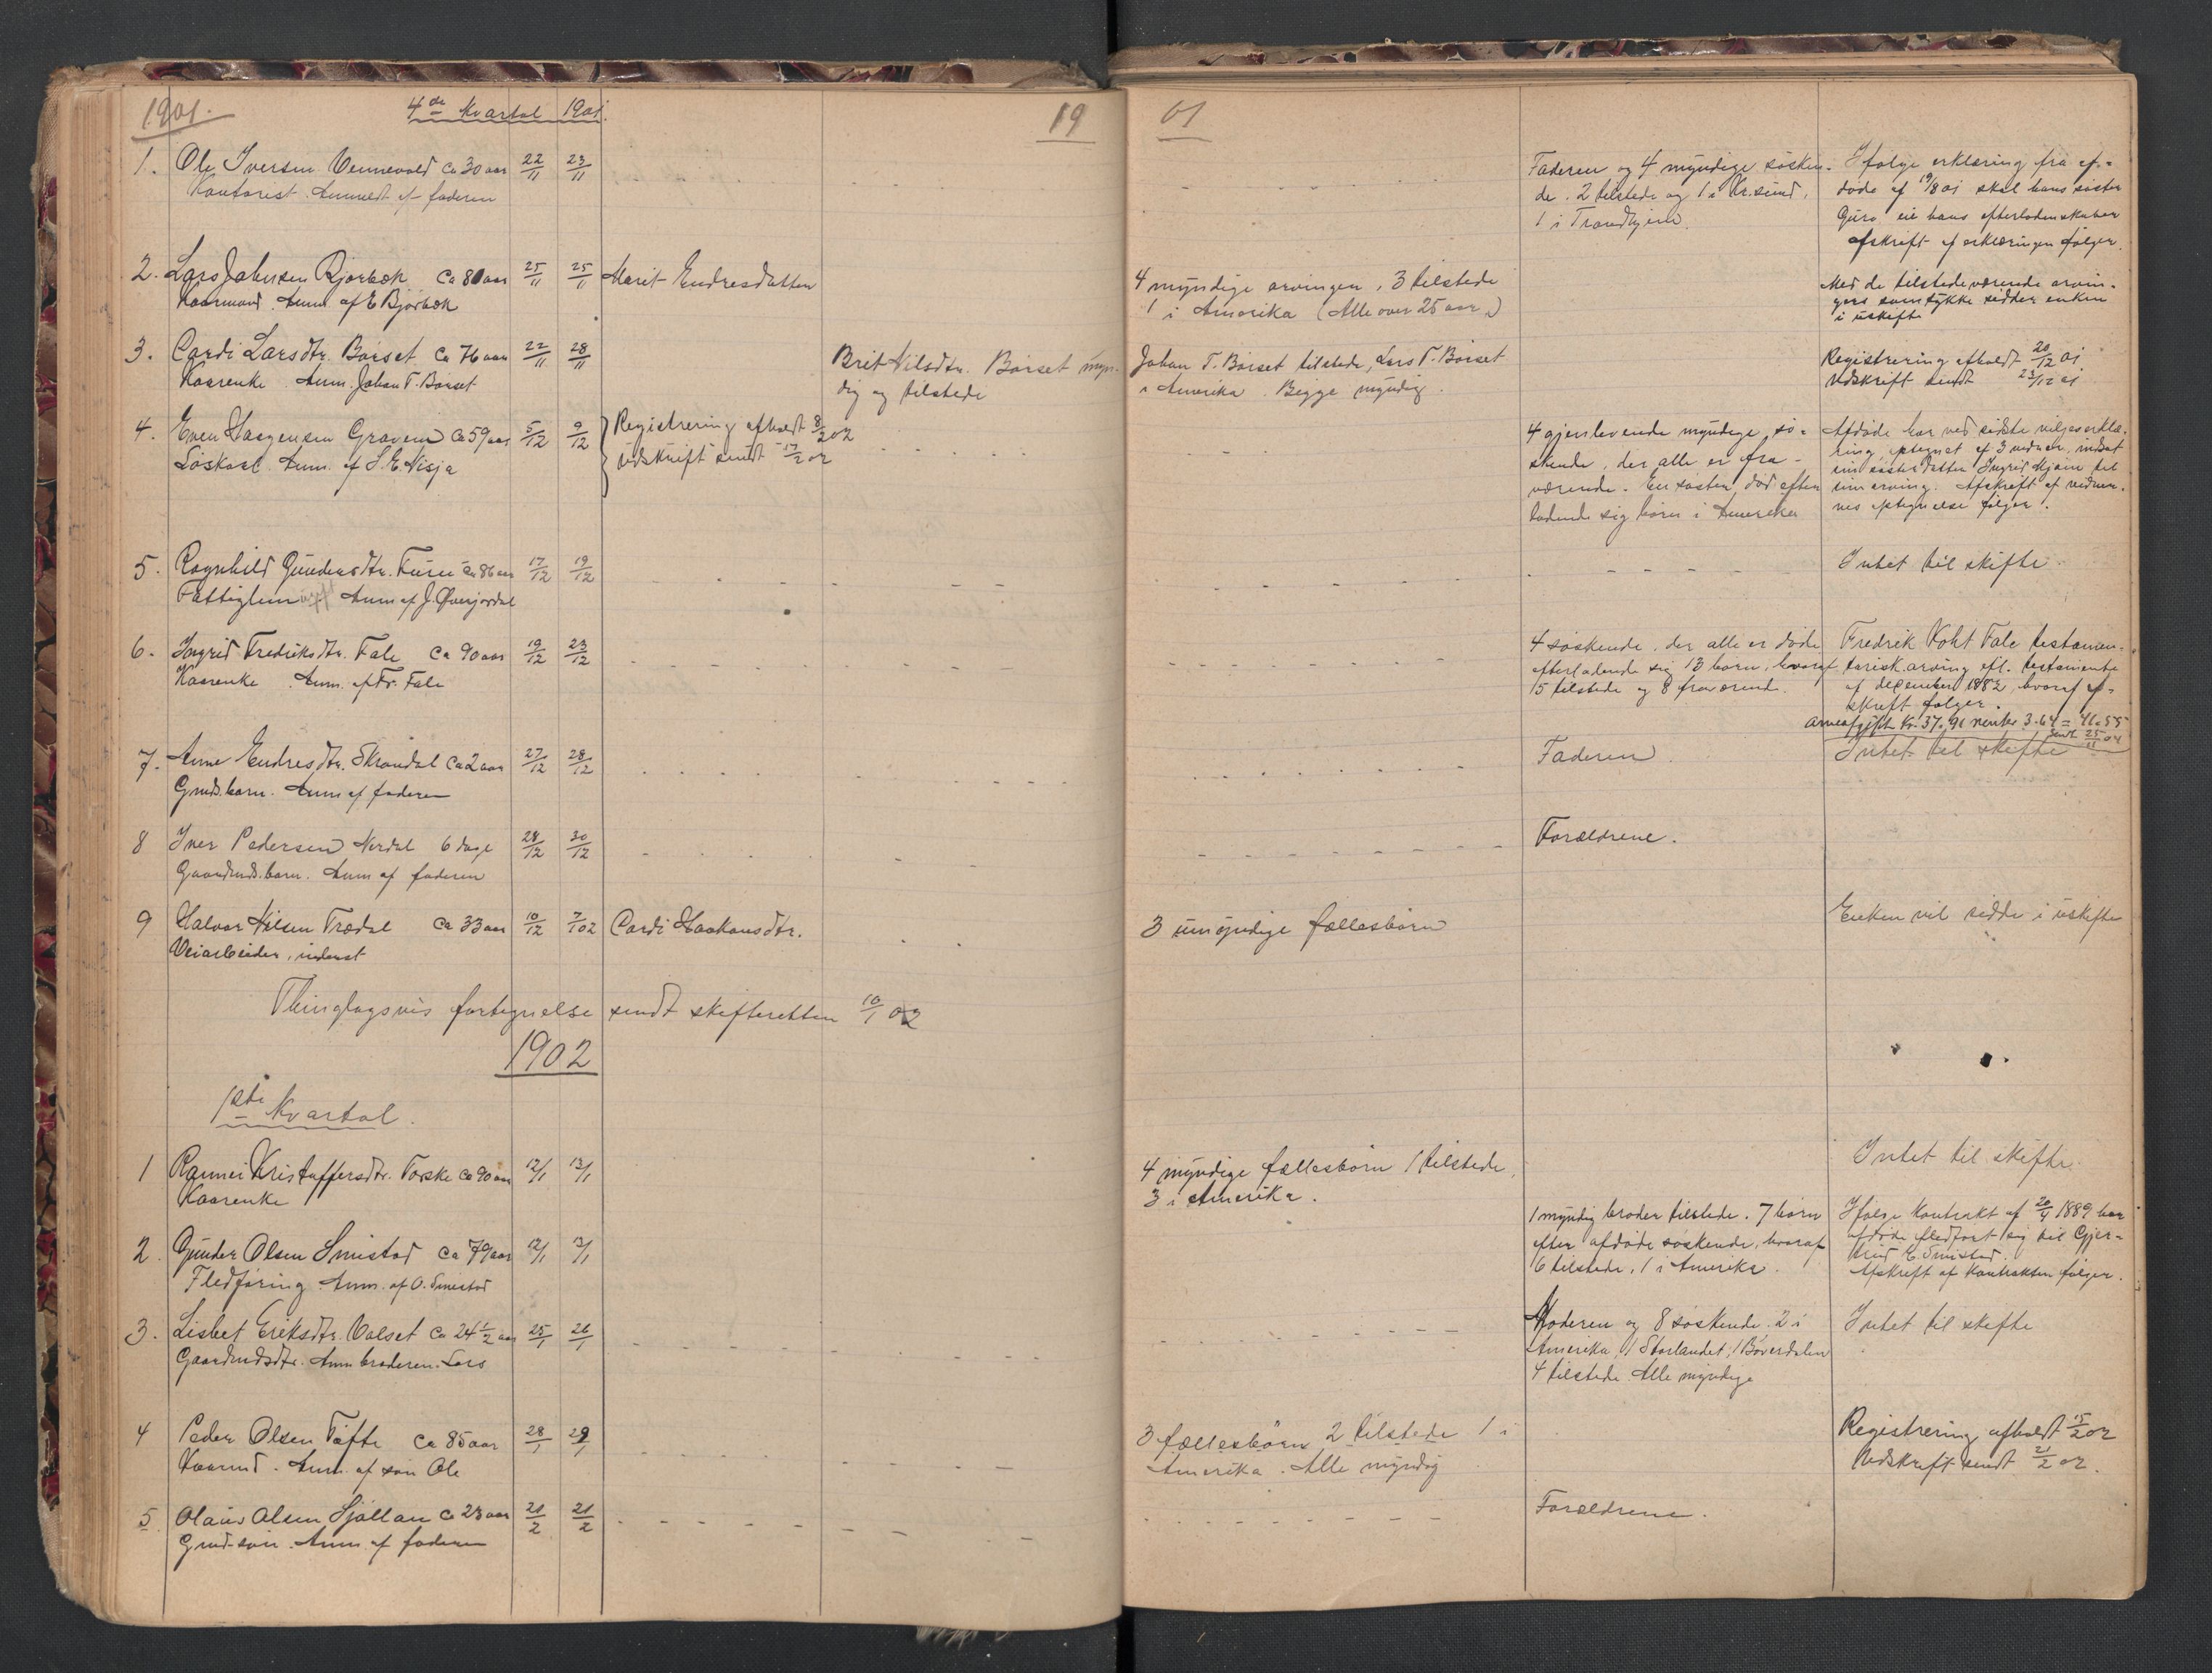 1901. 4de Kvartal 1901. 19 01
1. Ole Iversen Vennevold Ca 30 aar 22/11 23/11
Kontorist. Anmeldt af faderen
Faderen og 4 myndige sösken-
de. 2 tilstede og 1 i Kr.sund,
1 i Trondhjem.
Ifölge erklæring fra af-
döde af 19/8 01 skal hans söster
Guro eie hans efterladenskaber
Afskrift af erklæringen fölger.
2. Lars Johnsen Bjørbæk Ca 80 aar 25/11 25/11 Marit Endresdatter
Kaarmand. Anm. af E Bjørbæk
4 myndige arvinger, 3 tilstede
1 i Amerika (Alle over 25 aar.)
Med de tilstedeværende arvin-
gers samtykke sidder enken
i uskifte
3. Cardi Larsdtr. Börset Ca 76 aar 22/11 28/11
Kaarenke Anm. Johan T. Börset
Brit Nilsdtr. Börset myn-
dig og tilstede
Johan T. Börset tilstede, Lars T. Börset
i Amerika. Begge myndig.
Registrering afholdt 20/12 01
Udskrift sendt 23/12 01
4. Even Haagensen Gravem Ca 59 aar 5/12 9/12
Löskarl. Anm. af S. E. Nisja
Registrering afholdt 8/2 02
Udskrift sendt 17/2 02
4 gjenlevende myndige sö-
skende, der alle er fra-
værende. En söster död efter-
ladende sig börn i Amerika
Afdöde har ved sidste viljeserklæ-
ring, optegnet af 3 vidner, indsat
sin sösterdatter Ingrid Mjöen til
sin arving. Afskrift af vidner-
nes optegnelse fölger.
5. Ragnhild Gundersdtr. Furu Ca 86 aar 17/12 19/12
Fattiglem Anm af J. Øverjordal
Intet til skifte.
6. Ingrid Fredriksdtr. Fale Ca 90 aar 19/12 23/12
Kaarenke Anm. af Fr. Fale
4 söskende, der alle er döde
efterladende sig 13 börn, hvoraf
15 tilstede og 8 fraværende.
Fredrik Voht Fale testamen-
tarisk arving efl. testamente
af december 1882, hvoraf af-
skrift fölger.
Arveafgift Kr. 37.91 renter 3.64 = 41.55
sendt 25/11 04
7. Anne Endresdtr. Skrondal Ca 2 aar 27/12 28/12
Gmds.barn. Anm af faderen
Faderen.
Intet til skifte
8 Iver Pedersen Nerdal 6 dage 28/12 30/12
Gaardmds.barn. Anm af faderen
Forældrene.
9 Halvor Nilsen Trædal Ca 33 aar 10/12 7/1 02 Cardi Haakonsdtr.
Veiarbeider, inderst
3 umyndige fællesbörn
Enken vil sidde i uskifte
Thinglagsvis fortegnelse sendt skifteretten 10/1 02
1902
1ste Kvartal.
1 Rannei Kristoffersdtr. Torske Ca 90 aar 12/1 13/1
Kaarenke
4 myndige fællesbörn 1 tilstede,
3 i Amerika.
Intet til skifte.
2. Gunder Olsen Smistad Ca 79 aar 12/1 13/1
Fledföring. Anm. af O. Smestad
1 myndig broder tilstede. 7 börn
efter afdöde söskende, hvoraf
6 tilstede, 1 i Amerika.
Ifölge kontrakt af 20/4 1889 har
afdöde fledfört sig til Gjer-
trud E. Smistad.
Afskrift af kontrakten fölger.
3. Lisbet Eriksdtr. Valset Ca 24 1/2 aar 25/1 26/1
Gaardmdsdtr. Anm. broderen Lars
Moderen og 8 söskende. 2 i
Amerika, 1 Storlandet, 1 Bøverdalen
4 tilstede. Alle myndige
Intet til skifte
4 Peder Olsen Töfte Ca 85 aar 28/1 29/1
Kaarmd. Anm. af sön Ole
3 fællesbörn 2 tilstede 1 i
Amerika. Alle myndig
Registrering afholdt 15/2 02
Udskrift sendt 21/2 02.
5. Olaus Olsen Sjøllan Ca 23 aar 21/2 21/2
Gmd-sön. Anm. af faderen
Forældrene.